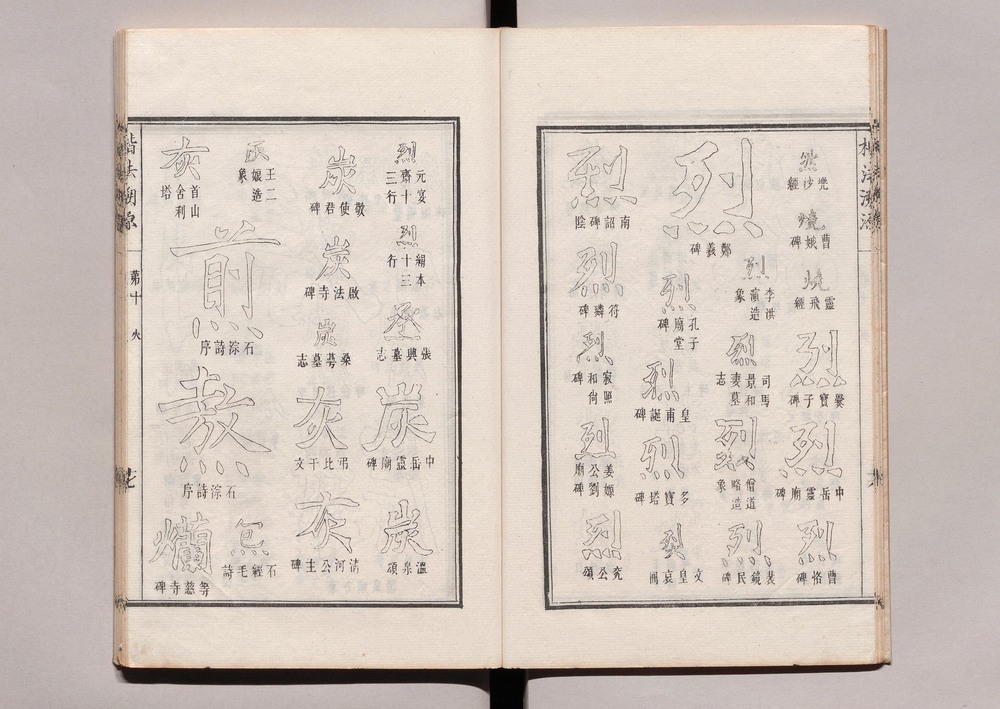 然
兜沙經
燒
曹娥碑
燒
靈飛經
烈
爨寶子碑
烈
中岳靈廟碑
烈
曹恪碑
烈
鄭羲碑
烈
李洪演造象
烈
司馬景和妻墓志
烈
僧道略造象
烈
裴鏡民碑
烈
孔子廟堂碑
烈
皇甫誕碑
烈
多寶塔碑
烈
文皇哀冊
烈
南詔碑陰
烈
符璘碑
烈
寂照和尙碑
烈
姜嫄公劉廟碑
烈
兖公頌
楷法溯源
烈
元宴齋十三行
烈
絹本十三行
烝
張興墓志
炭
中岳靈廟碑
炭
溫泉頌
炭
敬使君碑
炭
啟法寺碑
炭
桑𦶜墓志
灰
弔比干文
灰
清河公主碑
灰
王二娘造象
灰
首山舍利塔
煎
石淙詩序
熬
石淙詩序
炰
石經毛詩
爛
等慈寺碑
楷法溯源
第十
火